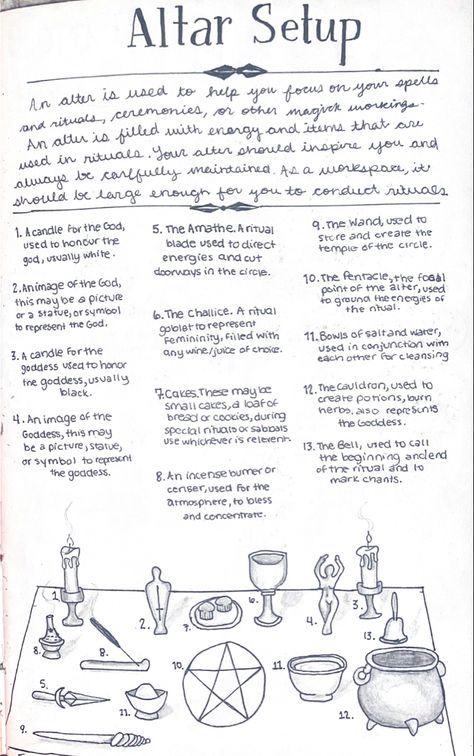 Altar Setup
An alter is used to help you focus on your spells
and rituals, ceremonies, or other magick workings.
An alter is filled with energy and items that are
used in rituals. Your alter should inspire you and
always be carfully maintained. As a workspace, it
should be large enough for you to conduct rituals.
1. A candle for the God,
used to honour the
god, usually white.
2. An image of the God,
this may be a picture
or a statue, or symbol
to represent the God.
3. A candle for the
goddess used to honor
the goddess, usually
black.
4. An image of the
Goddess, this may
be a picture, statue,
or symbol to represent
the goddess.
5. The Amathe. A ritual
blade used to direct
energies and cut
doorways in the circle.
6. The Challice. A ritual
goblet to represent
femininity, filled with
any wine/juice of choice.
7. Cakes. These may be
small cakes, a loaf of
bread or cookies, during
special rituals or sabbats
use whichever is relevent.
8. An incense burner or
censer, used for the
atmosphere, to bless
and concentrate.
9. The Wand, used to
store and create the
temple of the circle.
10. The Pentacle, the focal
point of the alter, used
to ground the energies of
the ritual.
11. Bowls of salt and water,
used in conjunction with
each other for cleansing
12. The Cauldron, used to
create potions, burn
herbs, also represents
the Goddess.
13. The Bell, used to call
the beginning and end
of the ritual and to
mark chants.
1.
2.
7.
6.
4.
3.
13.
8.
8.
10.
11.
5.
11.
12.
9.